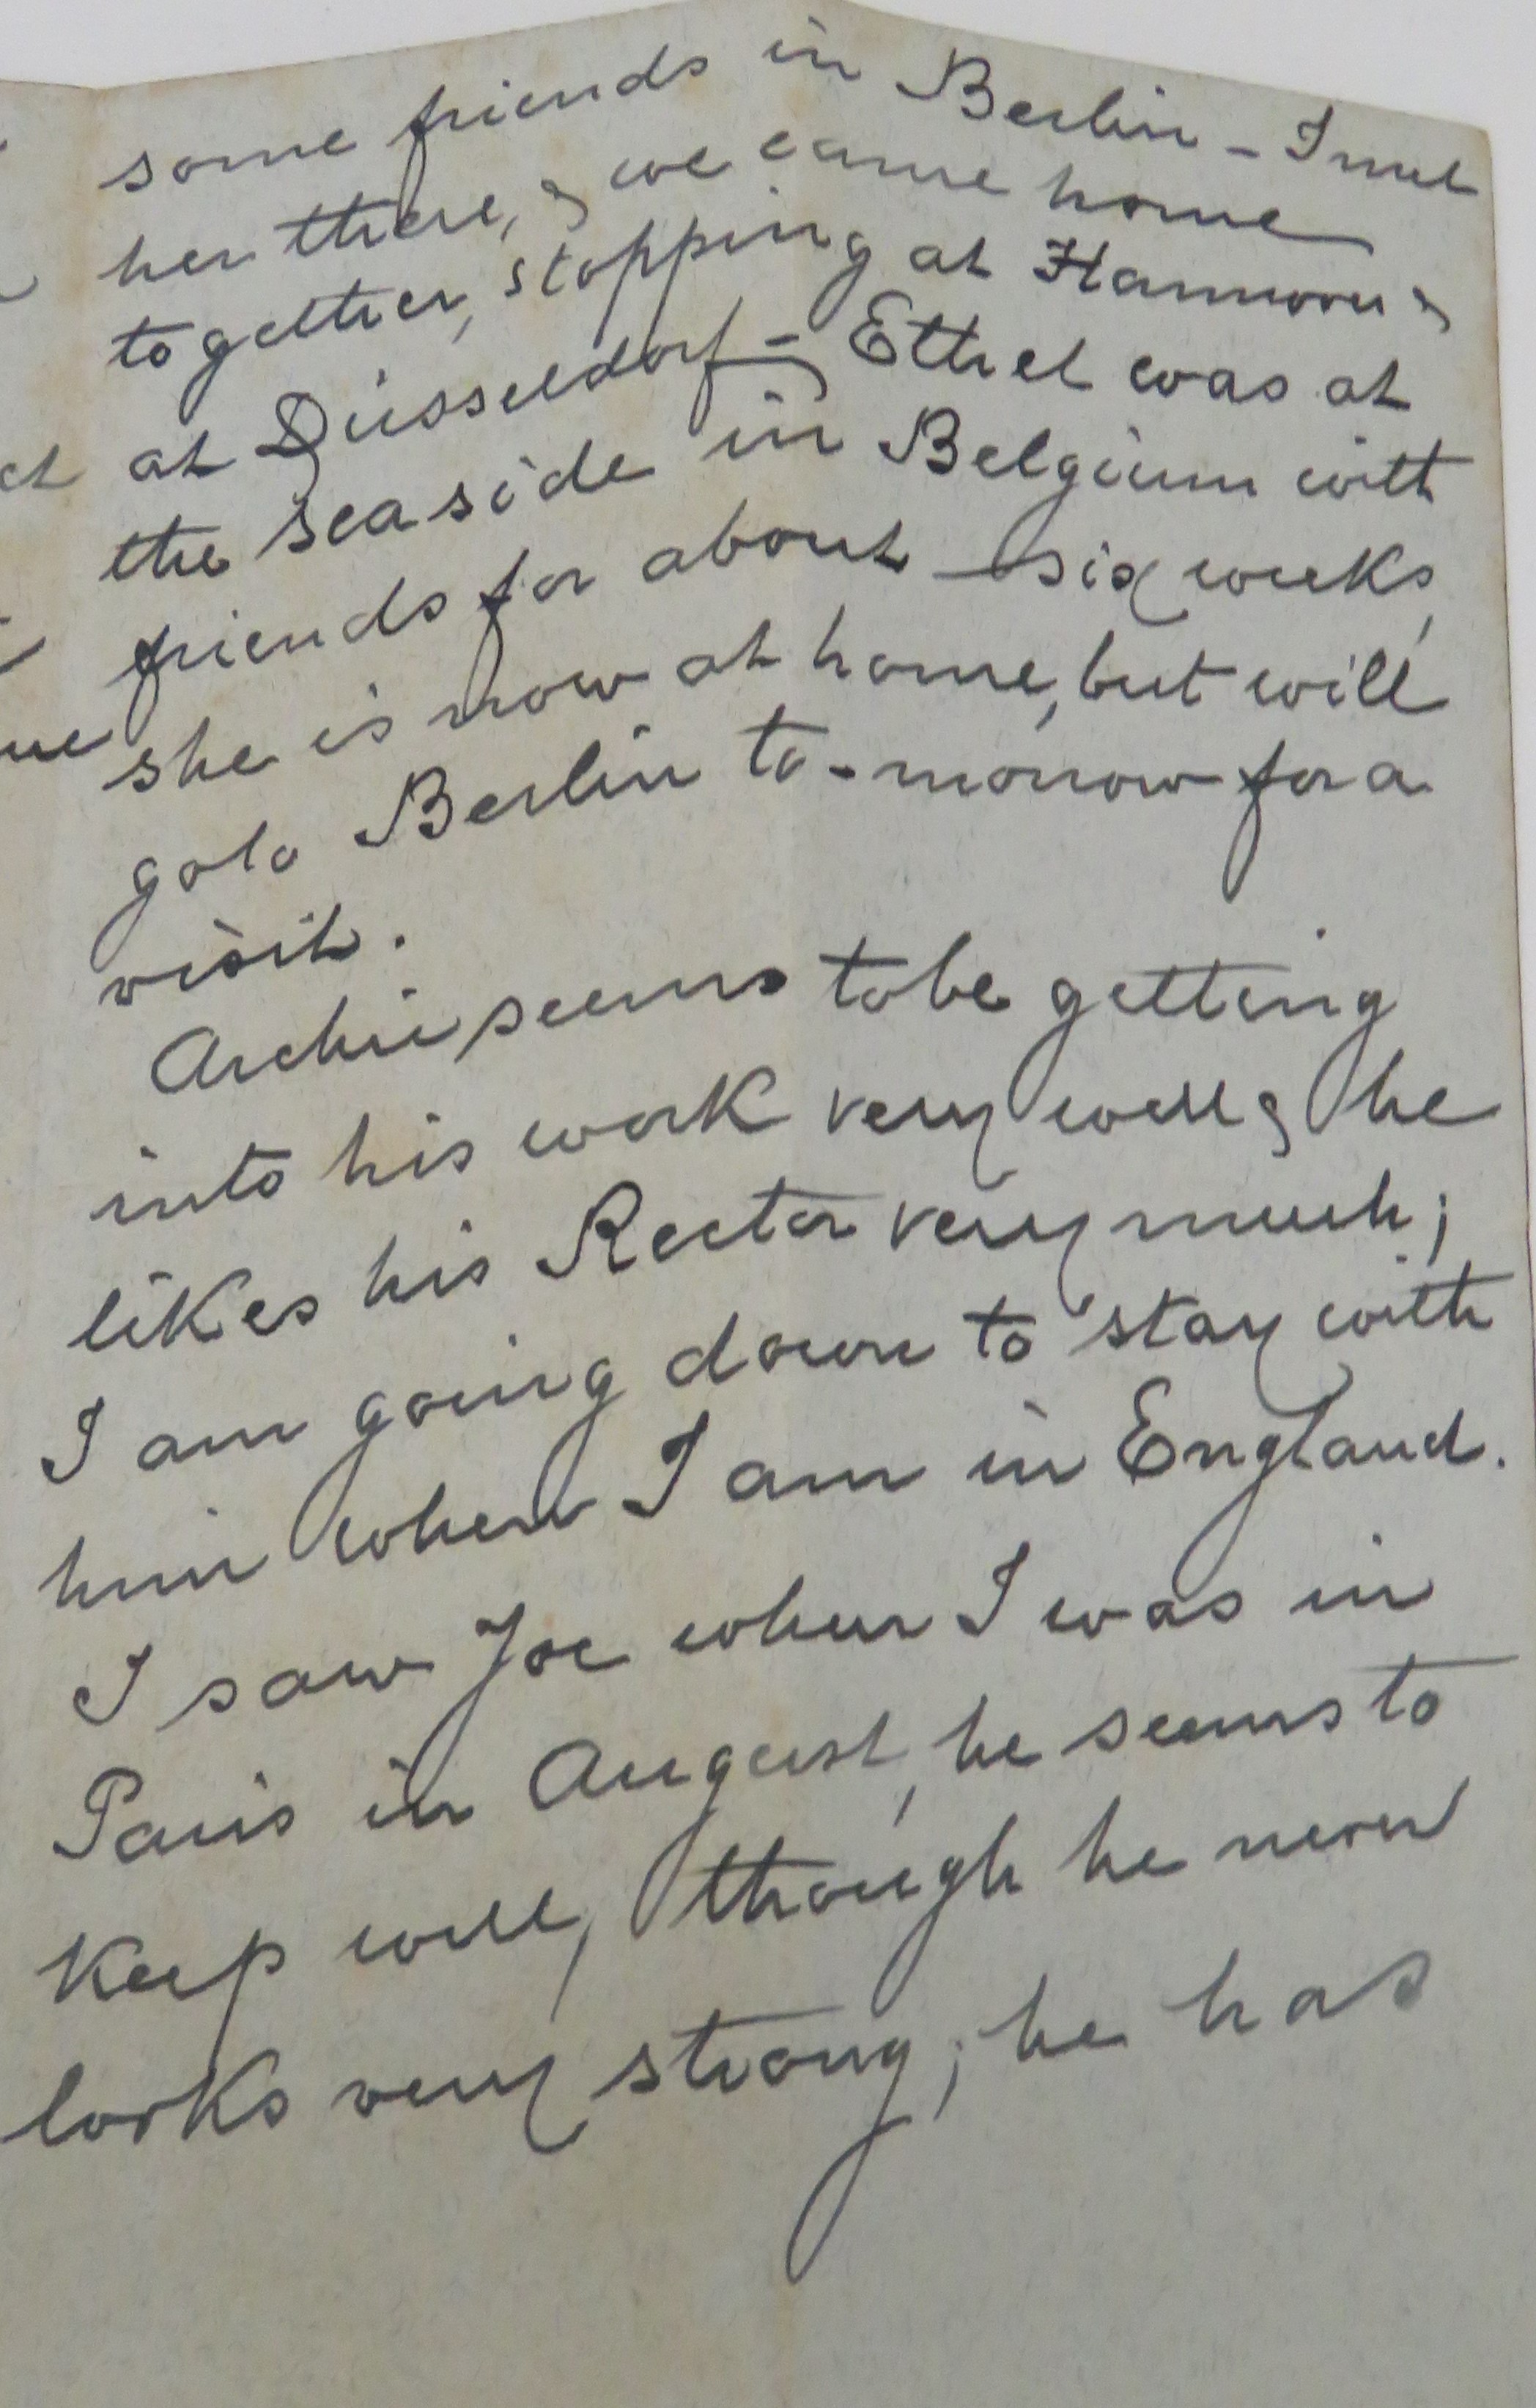 some friends in Berlin - I met
her there, & we came home
together, stopping at Hannover &
at Düsseldorf - Ethel was at
the seaside in Belgium with
friends for about six weeks,
she is now at home, but will
go to Berlin to-morrow for a
visit.
Archie seems to be getting
into his work very well & he
likes his Rector very much;
I am going down to stay with
him when I am in England.
I saw Joe when I was in
Paris in August, he seems to
keep well, though he never
looks very strong; he has